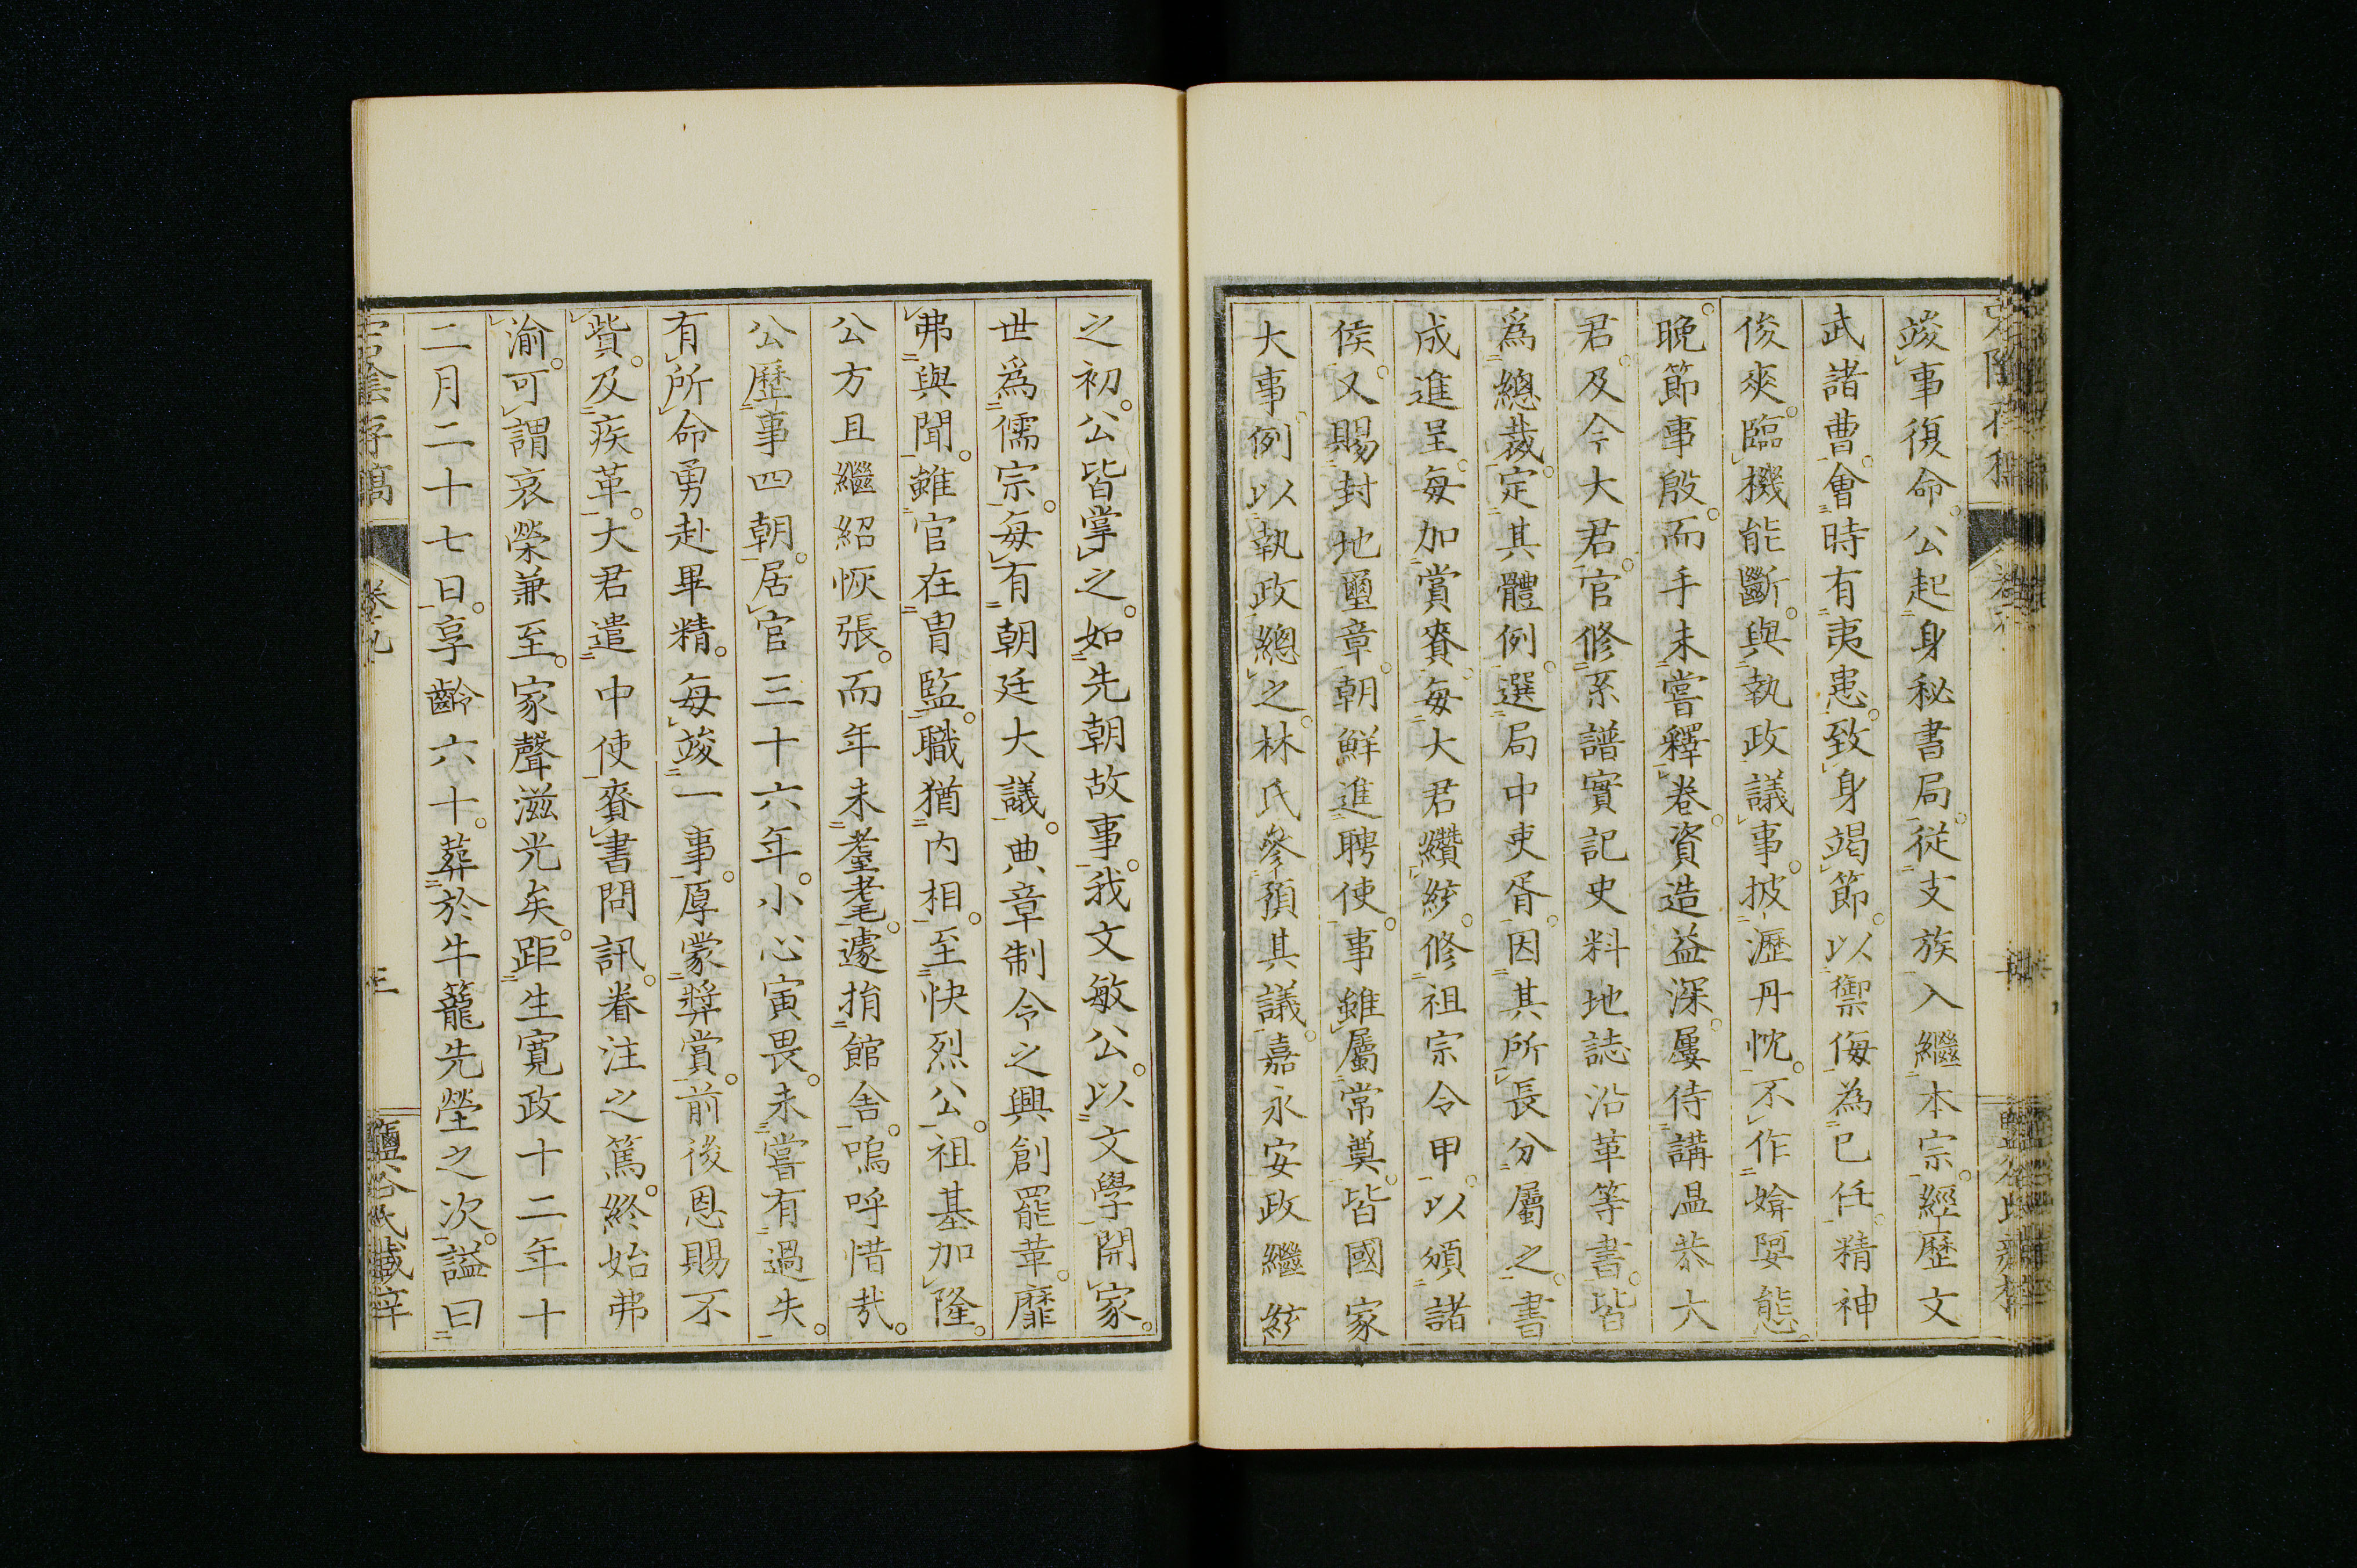 竣事復命。公起身秘書局。從支族入繼本宗。經歷文
武諸曹。會時有夷患。致身竭節。以禦侮為已任。精神
俊爽。臨機能斷。與執政議事。披瀝丹忱。不作媕娿態。
晚節事殷。而手未嘗釋卷。資造益深。屢侍講温恭大
君。及今大君。官修系譜實記史料地誌沿革等書。皆
爲總裁。定其體例。選局中吏胥。因其所長分屬之。書
成進呈。每加賞賚。每大君纘統。修祖宗令甲。以頒諸
侯。又賜封地璽章。朝鮮進聘使。事雖屬常奠。皆國家
大事。例以執政總之。林氏參預其議。嘉永安政繼統
之初。公皆掌之。如先朝故事。我文敏公。以文學開家。
世爲儒宗。每有朝廷大議。典章制令之興創罷革。靡
弗與聞。雖官在胄監。職猶内相。至快烈公。祖基加隆。
公方且繼紹恢張。而年未耋耄。遽捐館舍。嗚呼惜哉。
公歷事四朝。居官三十六年。小心寅畏。未嘗有過失。
有所命勇赴畢精。每竣一事。厚蒙奬賞。前後恩賜不
貲。及疾革。大君遣中使賚書問訊。眷注之篤。終始弗
渝。可謂哀榮兼至。家聲滋光矣。距生寬政十二年十
二月二十七日。享齡六十。葬於牛籠先塋之次。謚曰
卷九